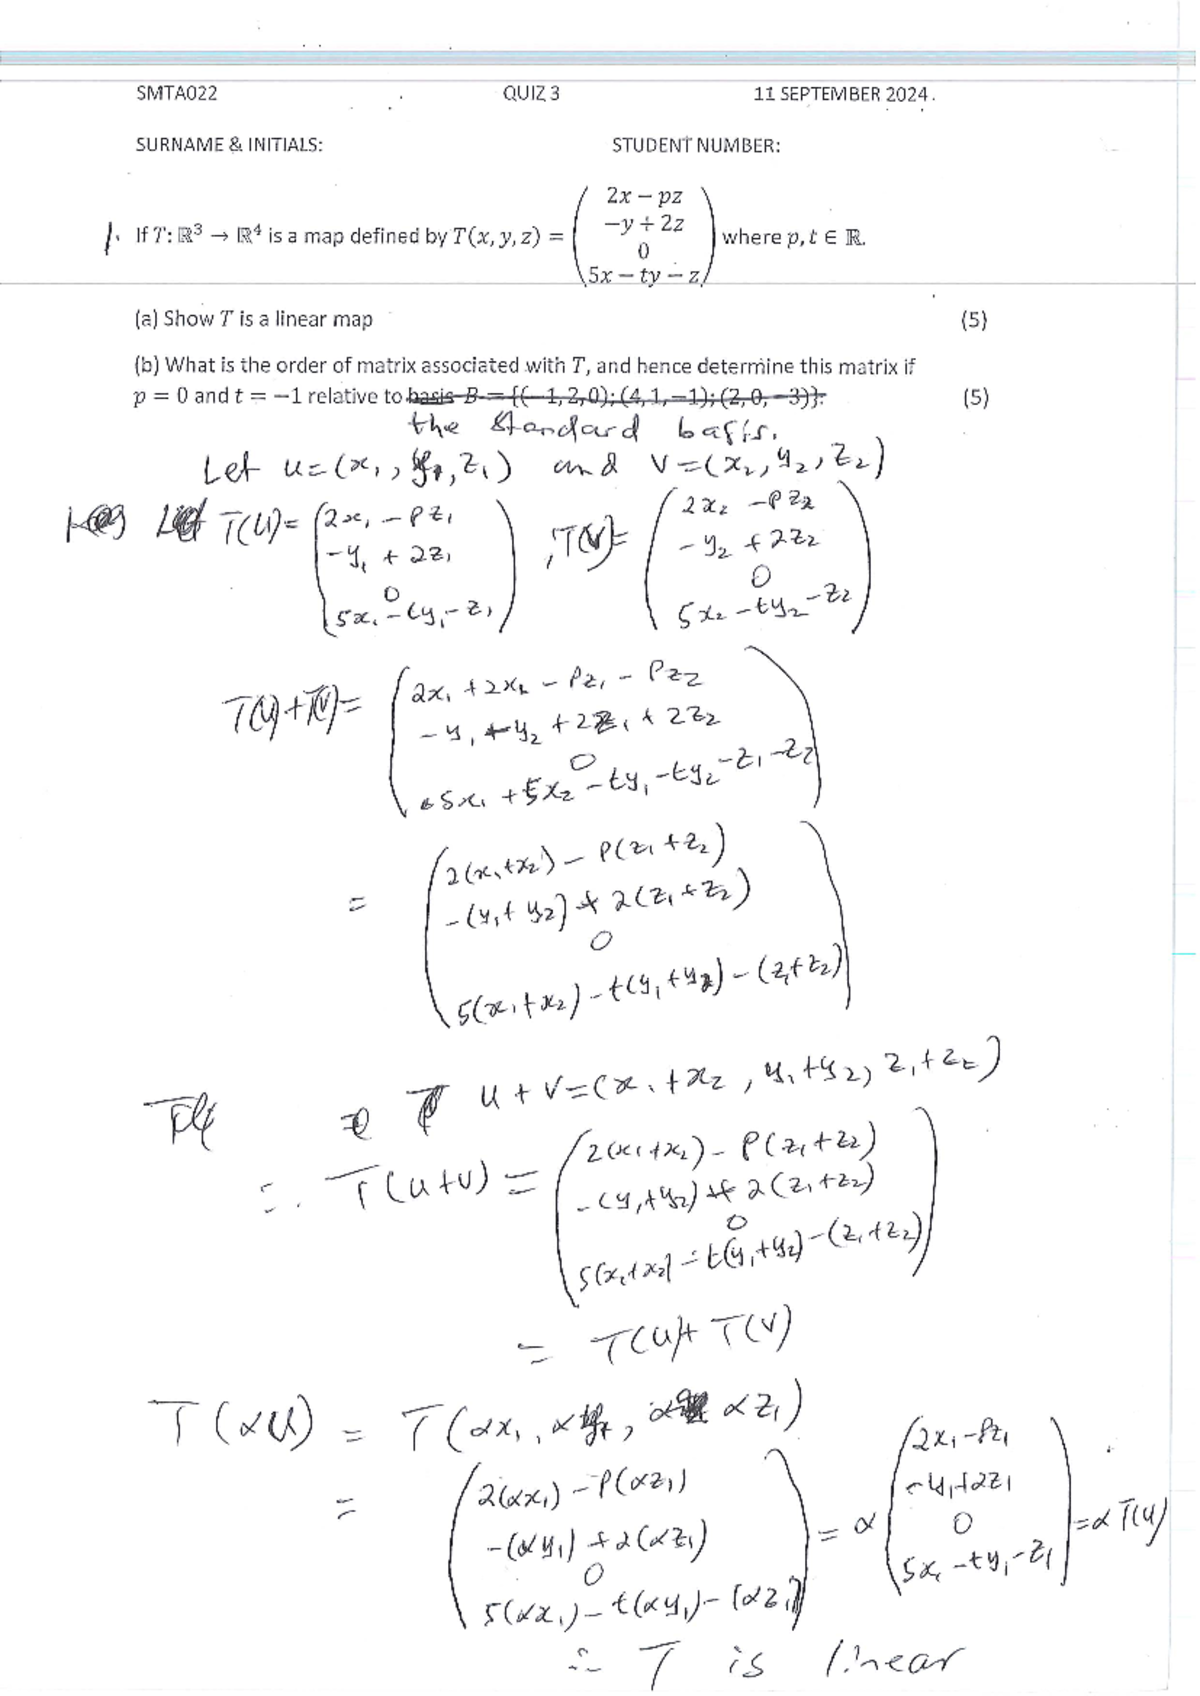 SMTA022 QUIZ 3 11 SEPTEMBER 2024.
SURNAME & INITIALS: STUDENT NUMBER:
1. If T: ℝ³ → ℝ⁴ is a map defined by T(x, y, z) = ( 2x − pz
−y + 2z
0
5x − ty − z ) where p, t ∈ ℝ.
(a) Show T is a linear map (5)
(b) What is the order of matrix associated with T, and hence determine this matrix if
p = 0 and t = −1 relative to basis B = {(−1, 2, 0); (4, 1, −1); (2, 0, −3)}. (5)
the standard basis.
Let u = (x₁, y₁, z₁) and v = (x₂, y₂, z₂)
T(u) = ( 2x₁ − pz₁
−y₁ + 2z₁
0
5x₁ − ty₁ − z₁ )
, T(v) = ( 2x₂ − pz₂
−y₂ + 2z₂
0
5x₂ − ty₂ − z₂ )
T(u) + T(v) = ( 2x₁ + 2x₂ − pz₁ − pz₂
−y₁ − y₂ + 2z₁ + 2z₂
0
5x₁ + 5x₂ − ty₁ − ty₂ − z₁ − z₂ )
= ( 2(x₁ + x₂) − p(z₁ + z₂)
−(y₁ + y₂) + 2(z₁ + z₂)
0
5(x₁ + x₂) − t(y₁ + y₂) − (z₁ + z₂) )
u + v = (x₁ + x₂, y₁ + y₂, z₁ + z₂)
∴ T(u + v) = ( 2(x₁ + x₂) − p(z₁ + z₂)
−(y₁ + y₂) + 2(z₁ + z₂)
0
5(x₁ + x₂) − t(y₁ + y₂) − (z₁ + z₂) )
= T(u) + T(v)
T(αu) = T(αx₁, αy₁, αz₁)
= ( 2(αx₁) − p(αz₁)
−(αy₁) + 2(αz₁)
0
5(αx₁) − t(αy₁) − (αz₁) )
= α ( 2x₁ − pz₁
−y₁ + 2z₁
0
5x₁ − ty₁ − z₁ ) = α T(u)
∴ T is linear